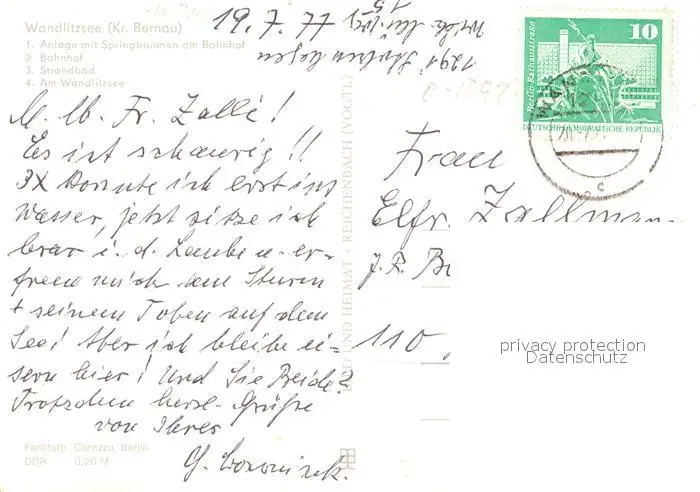 Wandlitzsee (Kr. Bernau)
1. Anlage mit Springbrunnen am Bahnhof
2. Bahnhof
3. Strandbad
4. Am Wandlitzsee
19.7.77
1291
M. lb. Fr. Zalli!
Es ist schaurig!!
3X konnte ich erst ins
Wasser, jetzt sitze ich
brav i. d. Laube u. er-
freue mich am Sturm
+ seinem Toben auf dem
See! Aber ich bleibe ei-
sern hier! Und Sie Beide?
Trotzdem herzl. Grüße
von Ihrer
G.
Farbfoto: Carazza, Berlin
DDR 0,20 M
BILD UND HEIMAT · REICHENBACH (VOGTL)
Berlin-Rathausstraße
10
DEUTSCHE DEMOKRATISCHE REPUBLIK
c
Frau
Elfr. Zallmann
J.R. Be
110
privacy protection
Datenschutz